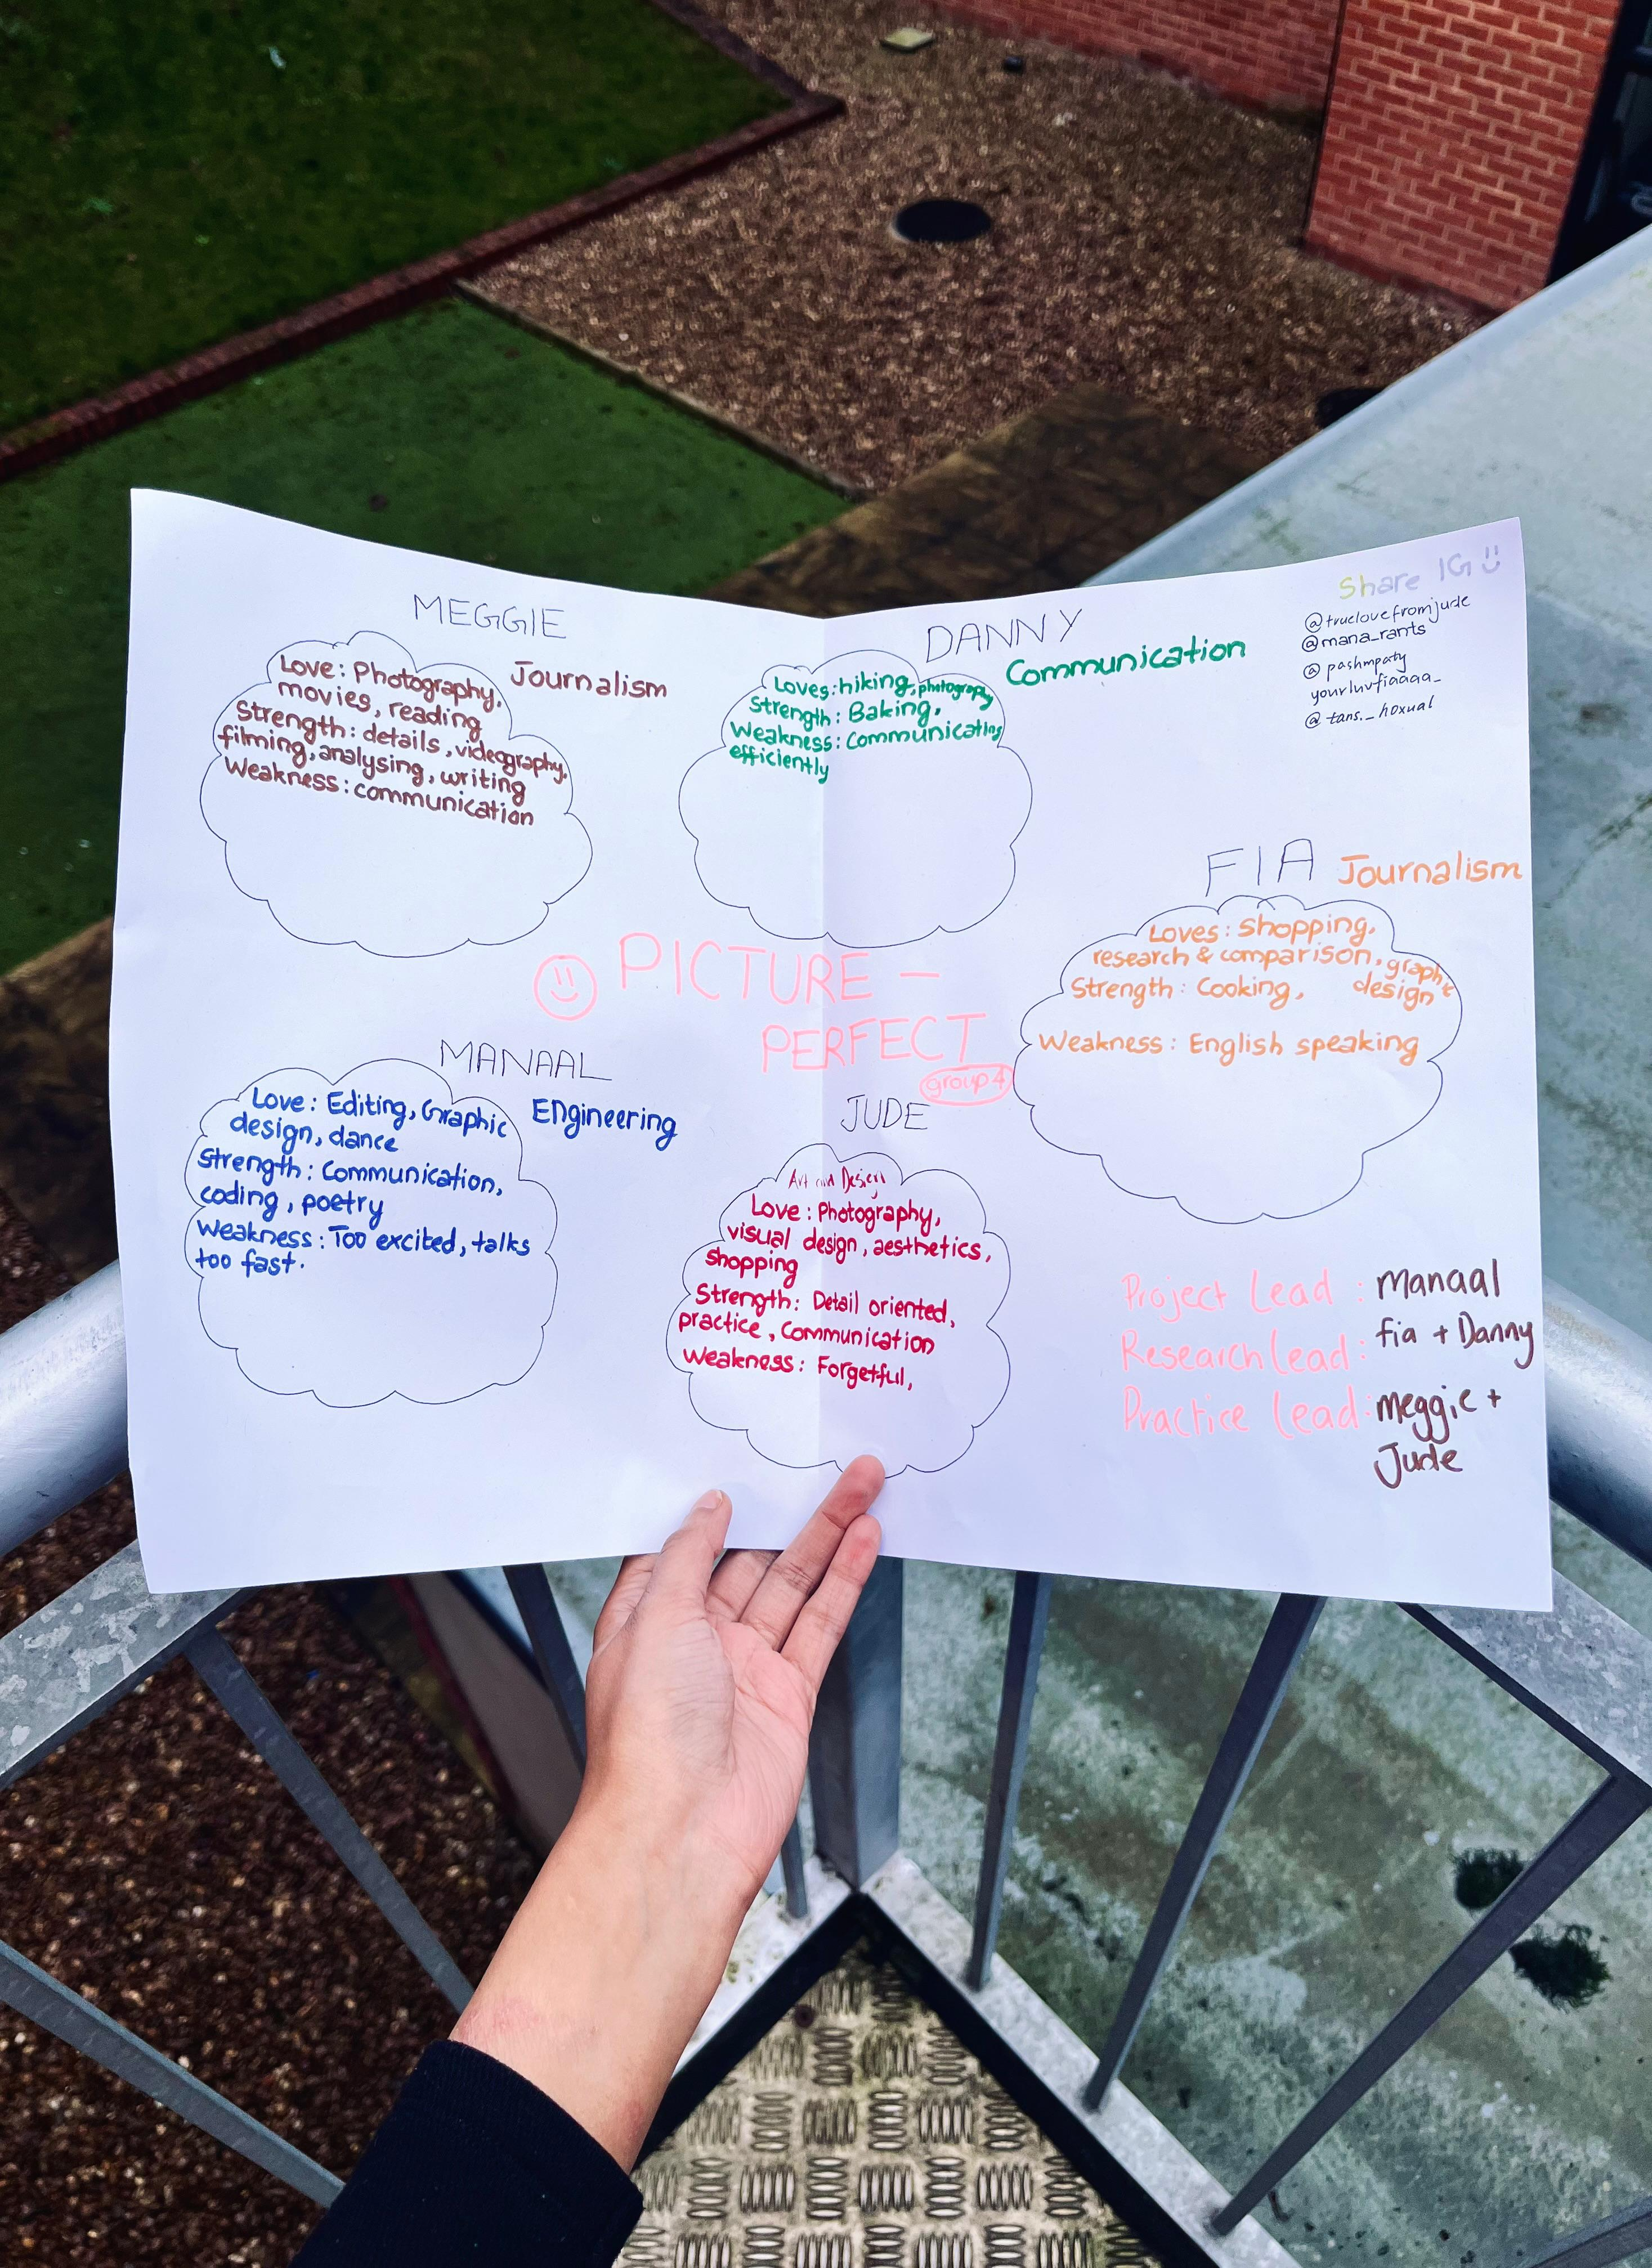 MEGGIE
Journalism
Love: Photography,
movies, reading
Strength: details, videography,
filming, analysing, writing
Weakness: communication
DANNY
Communication
Loves: hiking, photography
Strength: Baking,
Weakness: Communicating
efficiently
Share IG
@truelovefromjude
@mana_rants
@pashmpaty
yourluvfiaaaa_
@tans._hoxual
FIA Journalism
Loves: Shopping,
research & comparison, graphic
Strength: Cooking, design
Weakness: English speaking
PICTURE -
PERFECT
group 4
MANAAL
Engineering
Love: Editing, Graphic
design, dance
Strength: Communication,
coding, poetry
Weakness: Too excited, talks
too fast.
JUDE
Art and Design
Love: Photography,
visual design, aesthetics,
shopping
Strength: Detail oriented,
practice, Communication
Weakness: Forgetful,
Project Lead : Manaal
Research Lead : fia + Danny
Practice Lead : Meggie +
Jude